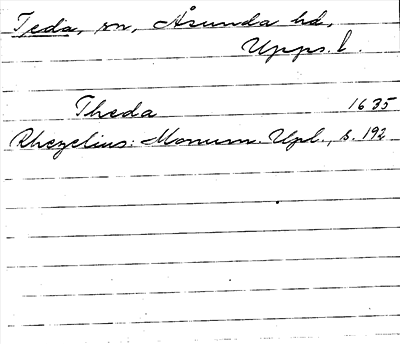 Teda, sn, Åsunda hd,
Upps. l.
Theda 1635
Rhezelius: Monum. Upl., s. 192